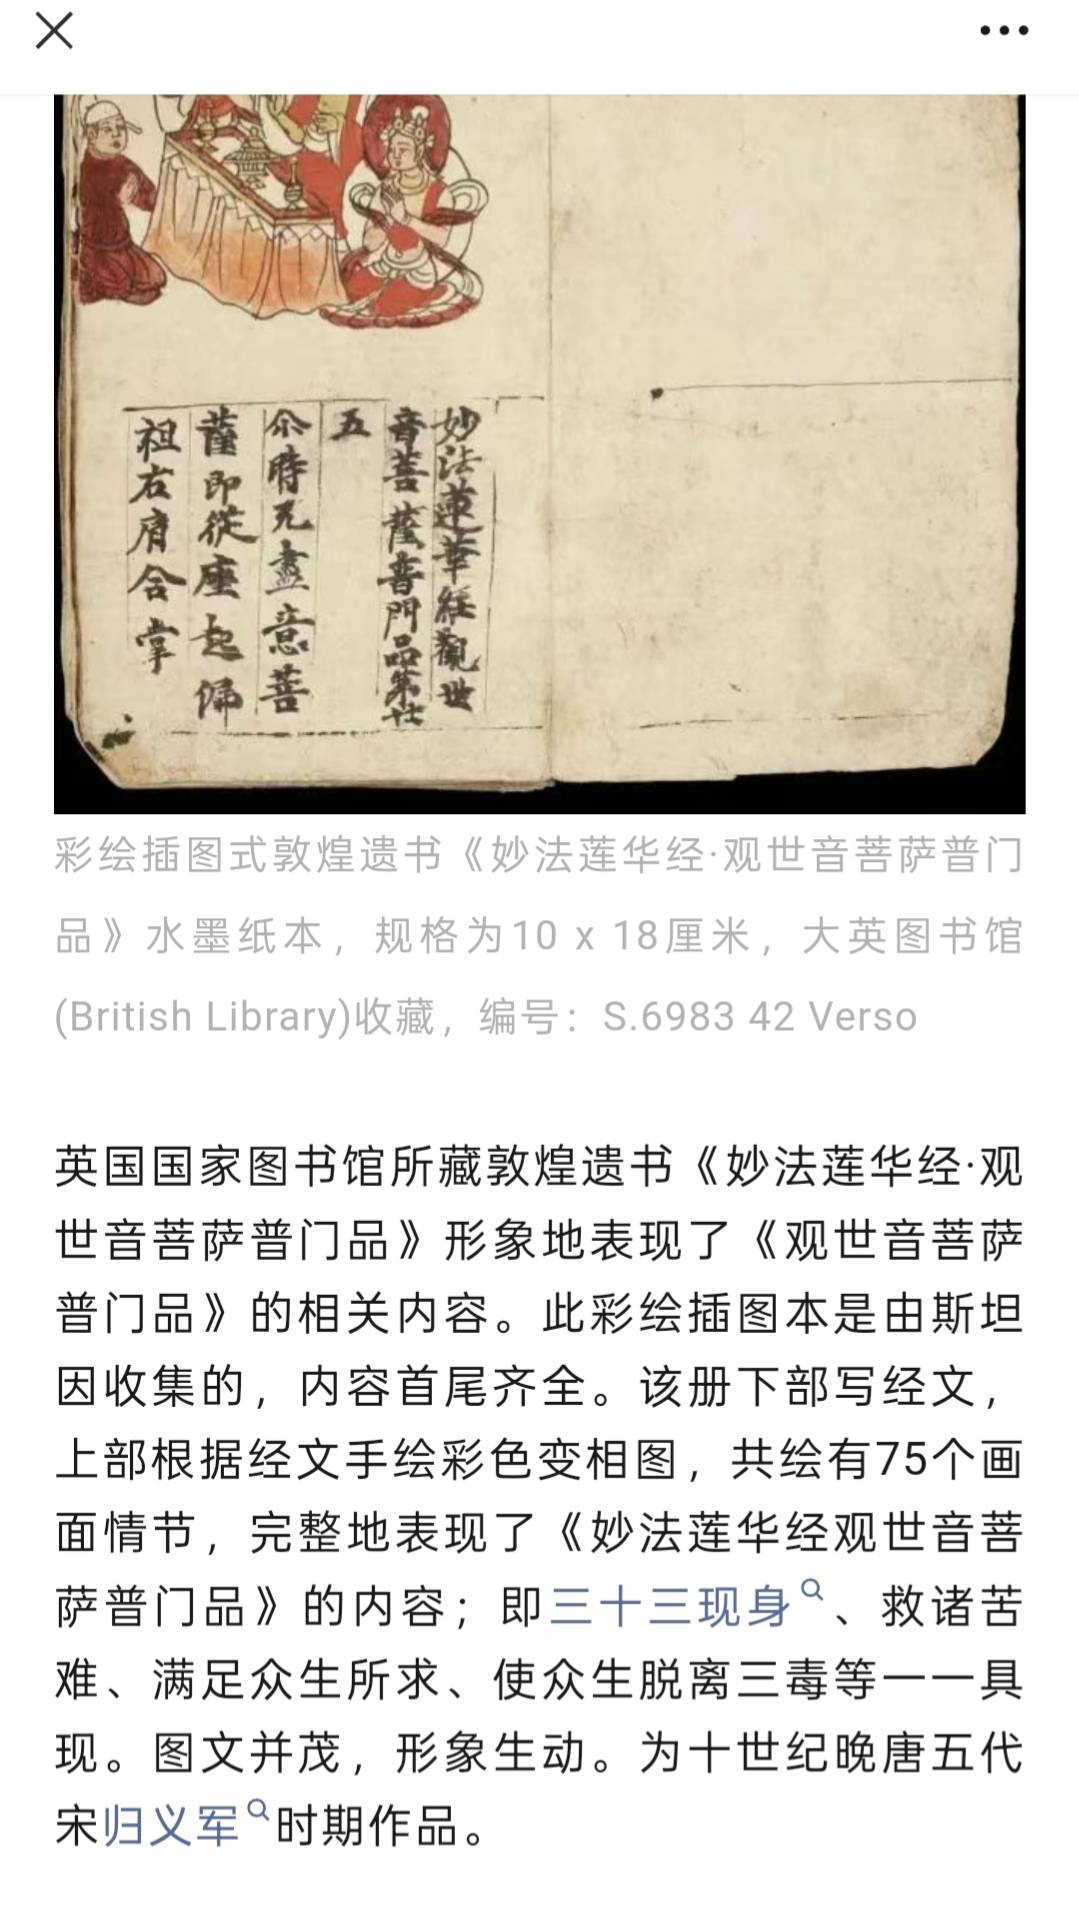 妙法蓮華經觀世
音菩薩普門品第廿
五
尒時无盡意菩
薩即從座起偏
袒右肩合掌
彩绘插图式敦煌遗书《妙法莲华经·观世音菩萨普门
品》水墨纸本，规格为10 x 18厘米，大英图书馆
(British Library)收藏，编号：S.6983 42 Verso
英国国家图书馆所藏敦煌遗书《妙法莲华经·观
世音菩萨普门品》形象地表现了《观世音菩萨
普门品》的相关内容。此彩绘插图本是由斯坦
因收集的，内容首尾齐全。该册下部写经文，
上部根据经文手绘彩色变相图，共绘有75个画
面情节，完整地表现了《妙法莲华经观世音菩
萨普门品》的内容；即三十三现身、救诸苦
难、满足众生所求、使众生脱离三毒等一一具
现。图文并茂，形象生动。为十世纪晚唐五代
宋归义军时期作品。